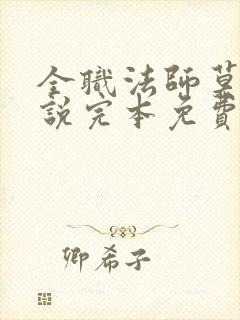 全職法師莫
說完本免費
卿希子